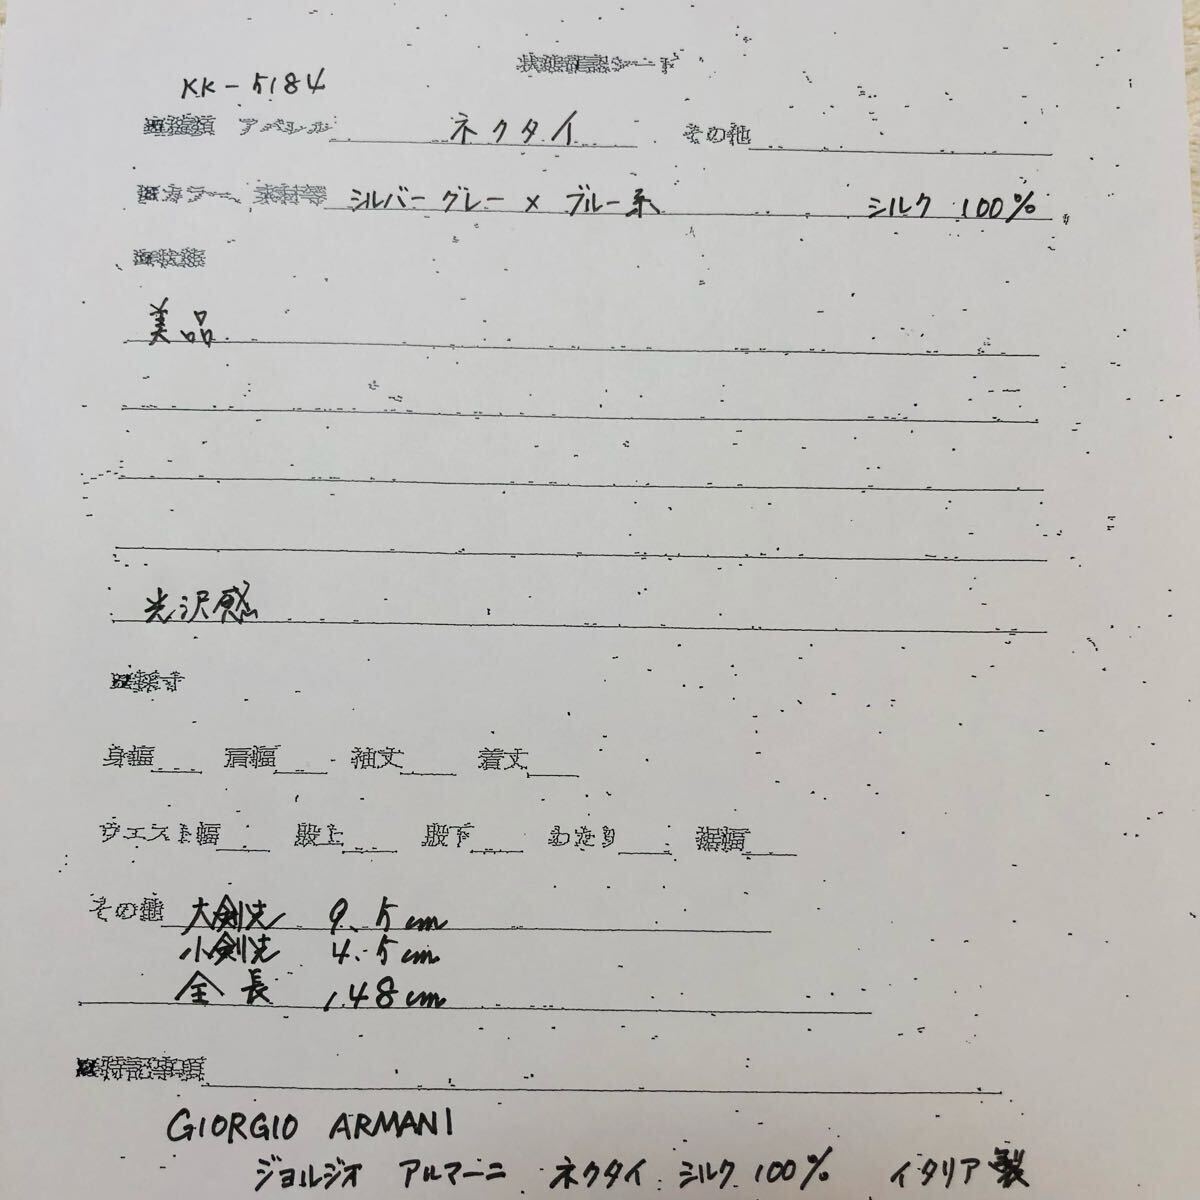 状態確認シート
KK-5184
■種類 アパレル ネクタイ その他
■カラー、素材等 シルバーグレー × ブルー系 シルク 100%
■状態
美品
光沢感
■採寸
身幅 肩幅 袖丈 着丈
ウエスト幅 股上 股下 わたり 裾幅
その他 大剣先 9.5cm
小剣先 4.5cm
全長 148cm
■特記事項
GIORGIO ARMANI
ジョルジオ アルマーニ ネクタイ シルク 100% イタリア製